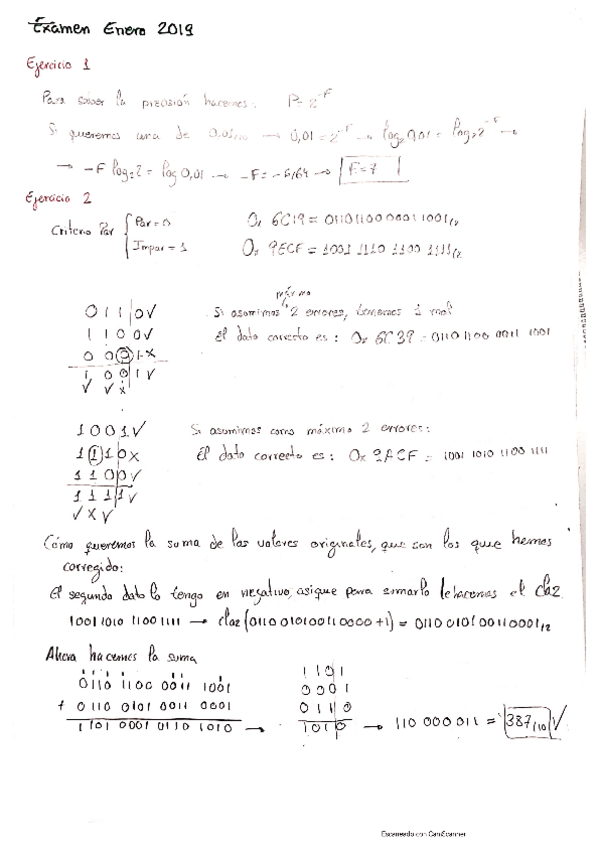 Examen Enero 2019
Ejercicio 1
Para saber la precisión hacemos: P=2^-F
Si queremos una de 0,01/10 → 0,01=2^-F → log2 0,01 = log2 2^-F →
→ -F log2 2 = log 0,01 → -F = -6,64 → F=7
Ejercicio 2
Criterio Par { Par=0
Impar=1
0x 6C19 = 0110 1100 0001 1001/2
0x 9ECF = 1001 1110 1100 1111/2
0 1 1 0 ✓
1 1 0 0 ✓
0 0 0 1 x
1 0 0 1 ✓
✓ ✓ x
máximo
Si asumimos 2 errores, tenemos 1 mal
El dato correcto es: 0x 6C39 = 0110 1100 0011 1001
1 0 0 1 ✓
1 1 1 0 x
1 1 0 0 ✓
1 1 1 1 ✓
✓ x ✓
Si asumimos como máximo 2 errores:
El dato correcto es: 0x 9ACF = 1001 1010 1100 1111
Cómo queremos la suma de los valores originales, que son los que hemos
corregido:
El segundo dato lo tengo en negativo, asique para sumarlo le hacemos el Ca2
1001 1010 1100 1111 → Ca2 (0110 0101 0011 0000 +1) = 0110 0101 0011 0001/2
Ahora hacemos la suma
0110 1100 0011 1001
+ 0110 0101 0011 0001
1101 0001 0110 1010 →
1 1 0 1
0 0 0 1
0 1 1 0
1 0 1 0
→ 110 000 011 = 387/10 ✓
Escaneado con CamScanner